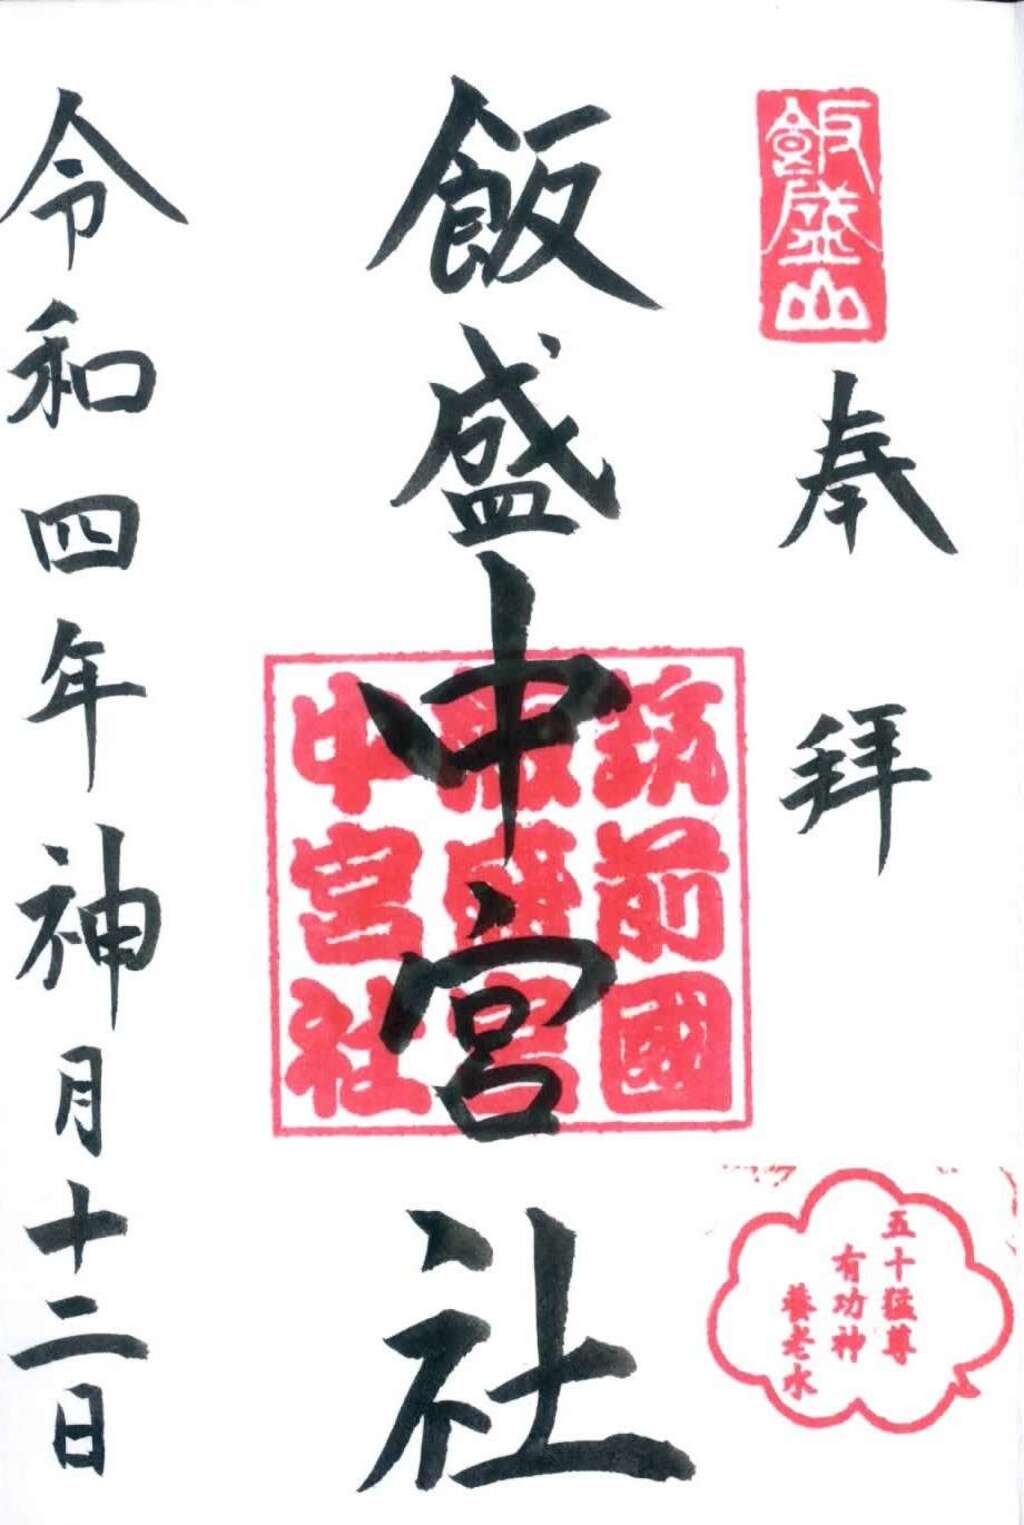 飯盛山
奉拝
筑前國
飯盛宮
中宮社
飯盛中宮社
五十猛尊
有功神
養老水
令和四年神月十二日